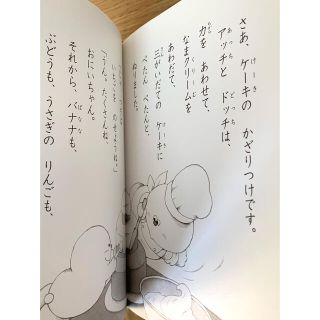 さあ、ケーキの かざりつけです。
アッチと ドッチは、
力を あわせて、
なまクリームを
あわだて、
三がいだての ケーキに
ぺたん ぺたんと、
ぬりました。
「うん。たくさんね、
おにいちゃん。
それから、バナナも、
ぶどうも、うさぎの りんごも、